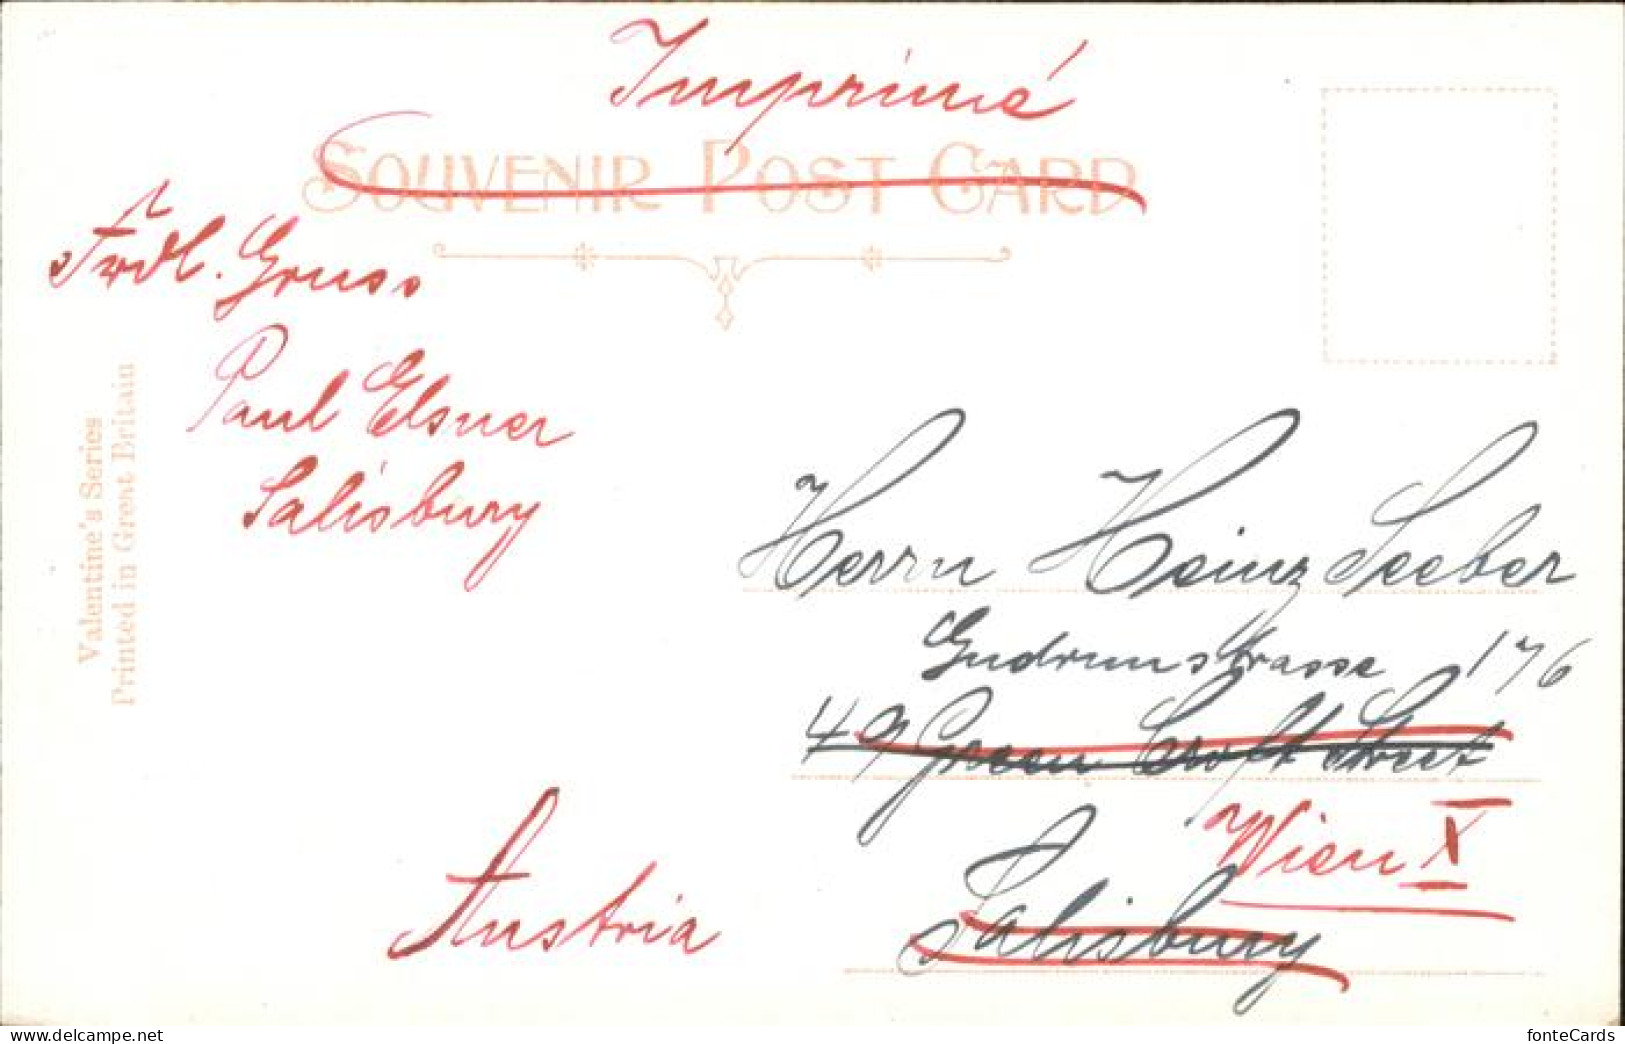 Imprimé
SOUVENIR POST CARD
Frdl. Gruss
Paul Elsner
Salisbury
Valentine's Series
Printed in Great Britain
Herrn Heinz Seeber
Gudrunstrasse 176
49 Green Croft Street
Wien X
Salisbury
Austria
www.delcampe.net
fonteCards